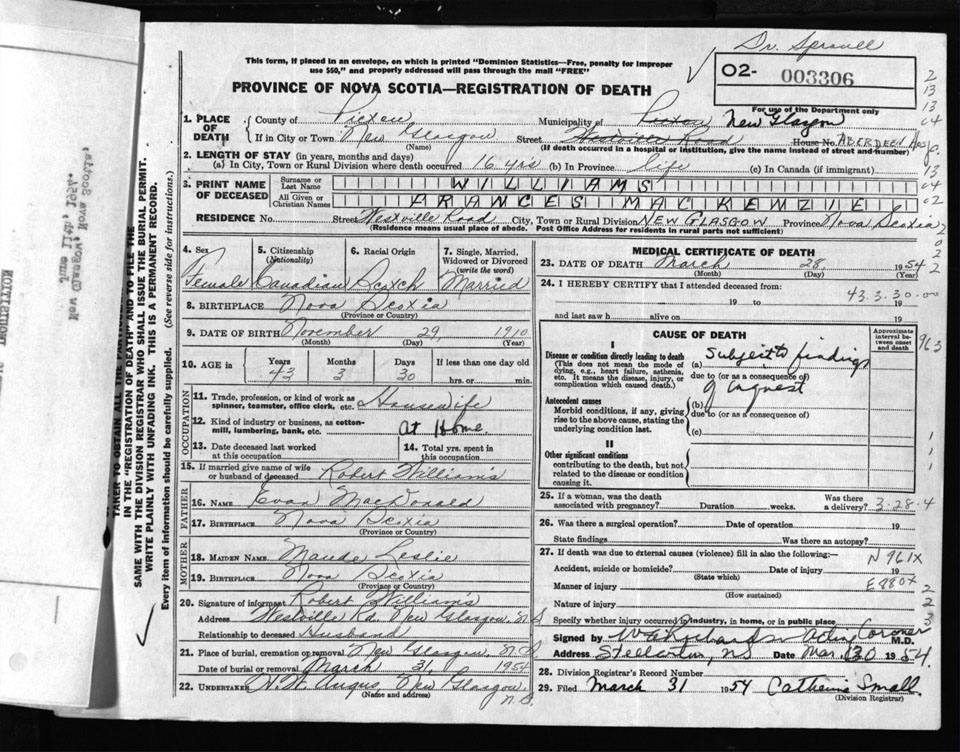 Dr. Sproull
This form, if placed in an envelope, on which is printed "Dominion Statistics—Free, penalty for improper
use $50," and properly addressed will pass through the mail "FREE"
02- 003306
For use of the Department only
PROVINCE OF NOVA SCOTIA—REGISTRATION OF DEATH
1. PLACE OF DEATH
County of Pictou Municipality of Pictou New Glasgow
If in City or Town New Glasgow Street Westville Road House No. ABERDEEN Hosp.
(Name) (If death occurred in a hospital or institution, give the name instead of street and number)
2. LENGTH OF STAY (in years, months and days)
(a) In City, Town or Rural Division where death occurred 16 yrs (b) In Province life (c) In Canada (if immigrant)
3. PRINT NAME OF DECEASED
Surname or Last Name WILLIAMS
All Given or Christian Names FRANCES MACKENZIE
RESIDENCE No. Street Westville Road City, Town or Rural Division NEW GLASGOW Province Nova Scotia
(Residence means usual place of abode. Post Office Address for residents in rural parts not sufficient)
4. Sex Female
5. Citizenship (Nationality) Canadian
6. Racial Origin Scotch
7. Single, Married, Widowed or Divorced (write the word) Married
8. BIRTHPLACE Nova Scotia
(Province or Country)
9. DATE OF BIRTH November 29, 1910
(Month) (Day) (Year)
10. AGE in Years Months Days If less than one day old
43 3 30 hrs. or min.
OCCUPATION
11. Trade, profession, or kind of work as spinner, teamster, office clerk, etc. Housewife
12. Kind of industry or business, as cotton-mill, lumbering, bank, etc. At Home
13. Date deceased last worked at this occupation
14. Total yrs. spent in this occupation
15. If married give name of wife or husband of deceased Robert William's
FATHER
16. NAME Evan MacDonald
17. BIRTHPLACE Nova Scotia
(Province or Country)
MOTHER
18. MAIDEN NAME Maude Leslie
19. BIRTHPLACE Nova Scotia
(Province or Country)
20. Signature of informant Robert William's
Address Westville Rd. New Glasgow, N.S
Relationship to deceased Husband
21. Place of burial, cremation or removal New Glasgow, N.S
Date of burial or removal March 31, 1954
22. UNDERTAKER H. W. Angus New Glasgow, N.S.
(Name and address)
MEDICAL CERTIFICATE OF DEATH
23. DATE OF DEATH March 28, 1954
(Month) (Day) (Year)
24. I HEREBY CERTIFY that I attended deceased from:
43.3.30.00
19 to 19
and last saw h alive on 19
CAUSE OF DEATH
Approximate interval between onset and death
I
Disease or condition directly leading to death
(This does not mean the mode of dying, e.g., heart failure, asthenia, etc. It means the disease, injury, or complication which caused death.)
(a) Subject to findings
due to (or as a consequence of)
of inquest
Antecedent causes
Morbid conditions, if any, giving rise to the above cause, stating the underlying condition last.
(b)
due to (or as a consequence of)
(c)
II
Other significant conditions
contributing to the death, but not related to the disease or condition causing it.
25. If a woman, was the death associated with pregnancy? Duration weeks. Was there a delivery? 3-28-4
26. Was there a surgical operation? Date of operation 19
State findings Was there an autopsy?
27. If death was due to external causes (violence) fill in also the following:—
N 961X
Accident, suicide or homicide? Date of injury 19
(State which)
E980X
Manner of injury
(How sustained)
Nature of injury
Specify whether injury occurred in industry, in home, or in public place
Signed by Acting Coroner M.D.
Address Stellarton, NS Date Mar. 30 1954.
28. Division Registrar's Record Number
29. Filed March 31 1954 Catherine Small.
(Division Registrar)
IN THE "REGISTRATION OF DEATH" AND TO FILE THE
SAME WITH THE DIVISION REGISTRAR WHO SHALL ISSUE THE BURIAL PERMIT.
WRITE PLAINLY WITH UNFADING INK. THIS IS A PERMANENT RECORD.
Every item of information should be carefully supplied. (See reverse side for instructions.)